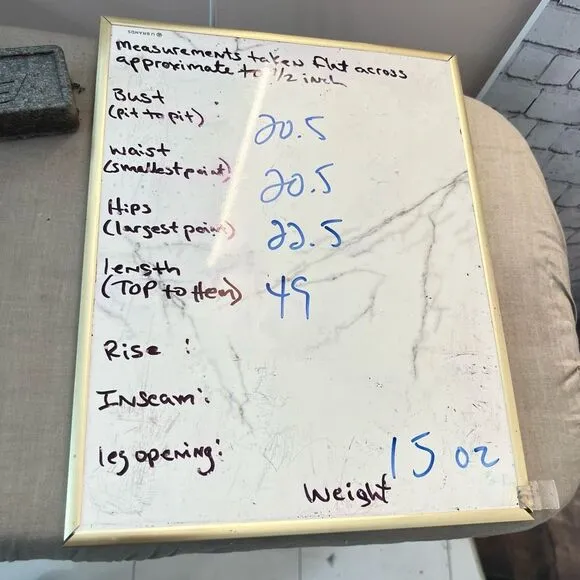 UBRANDS
Measurements taken flat across
approximate to 1/2 inch
Bust
(pit to pit) : 20.5
waist
(smallest point) 20.5
Hips
(largest point) 22.5
length
(TOP to Hem) 49
Rise :
Inseam:
leg opening:
15 oz
Weight